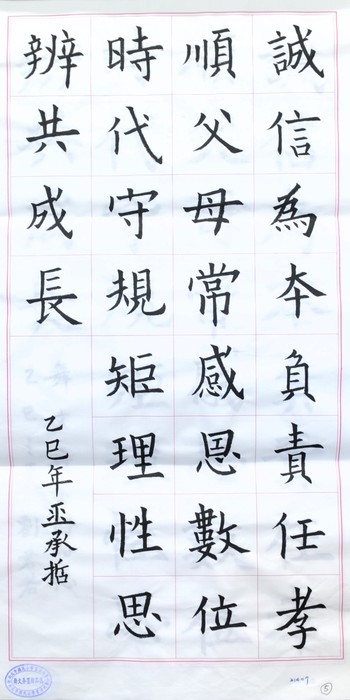 誠信為本負責任孝
順父母常感恩數位
時代守規矩理性思
辨共成長
乙巳年 承哲